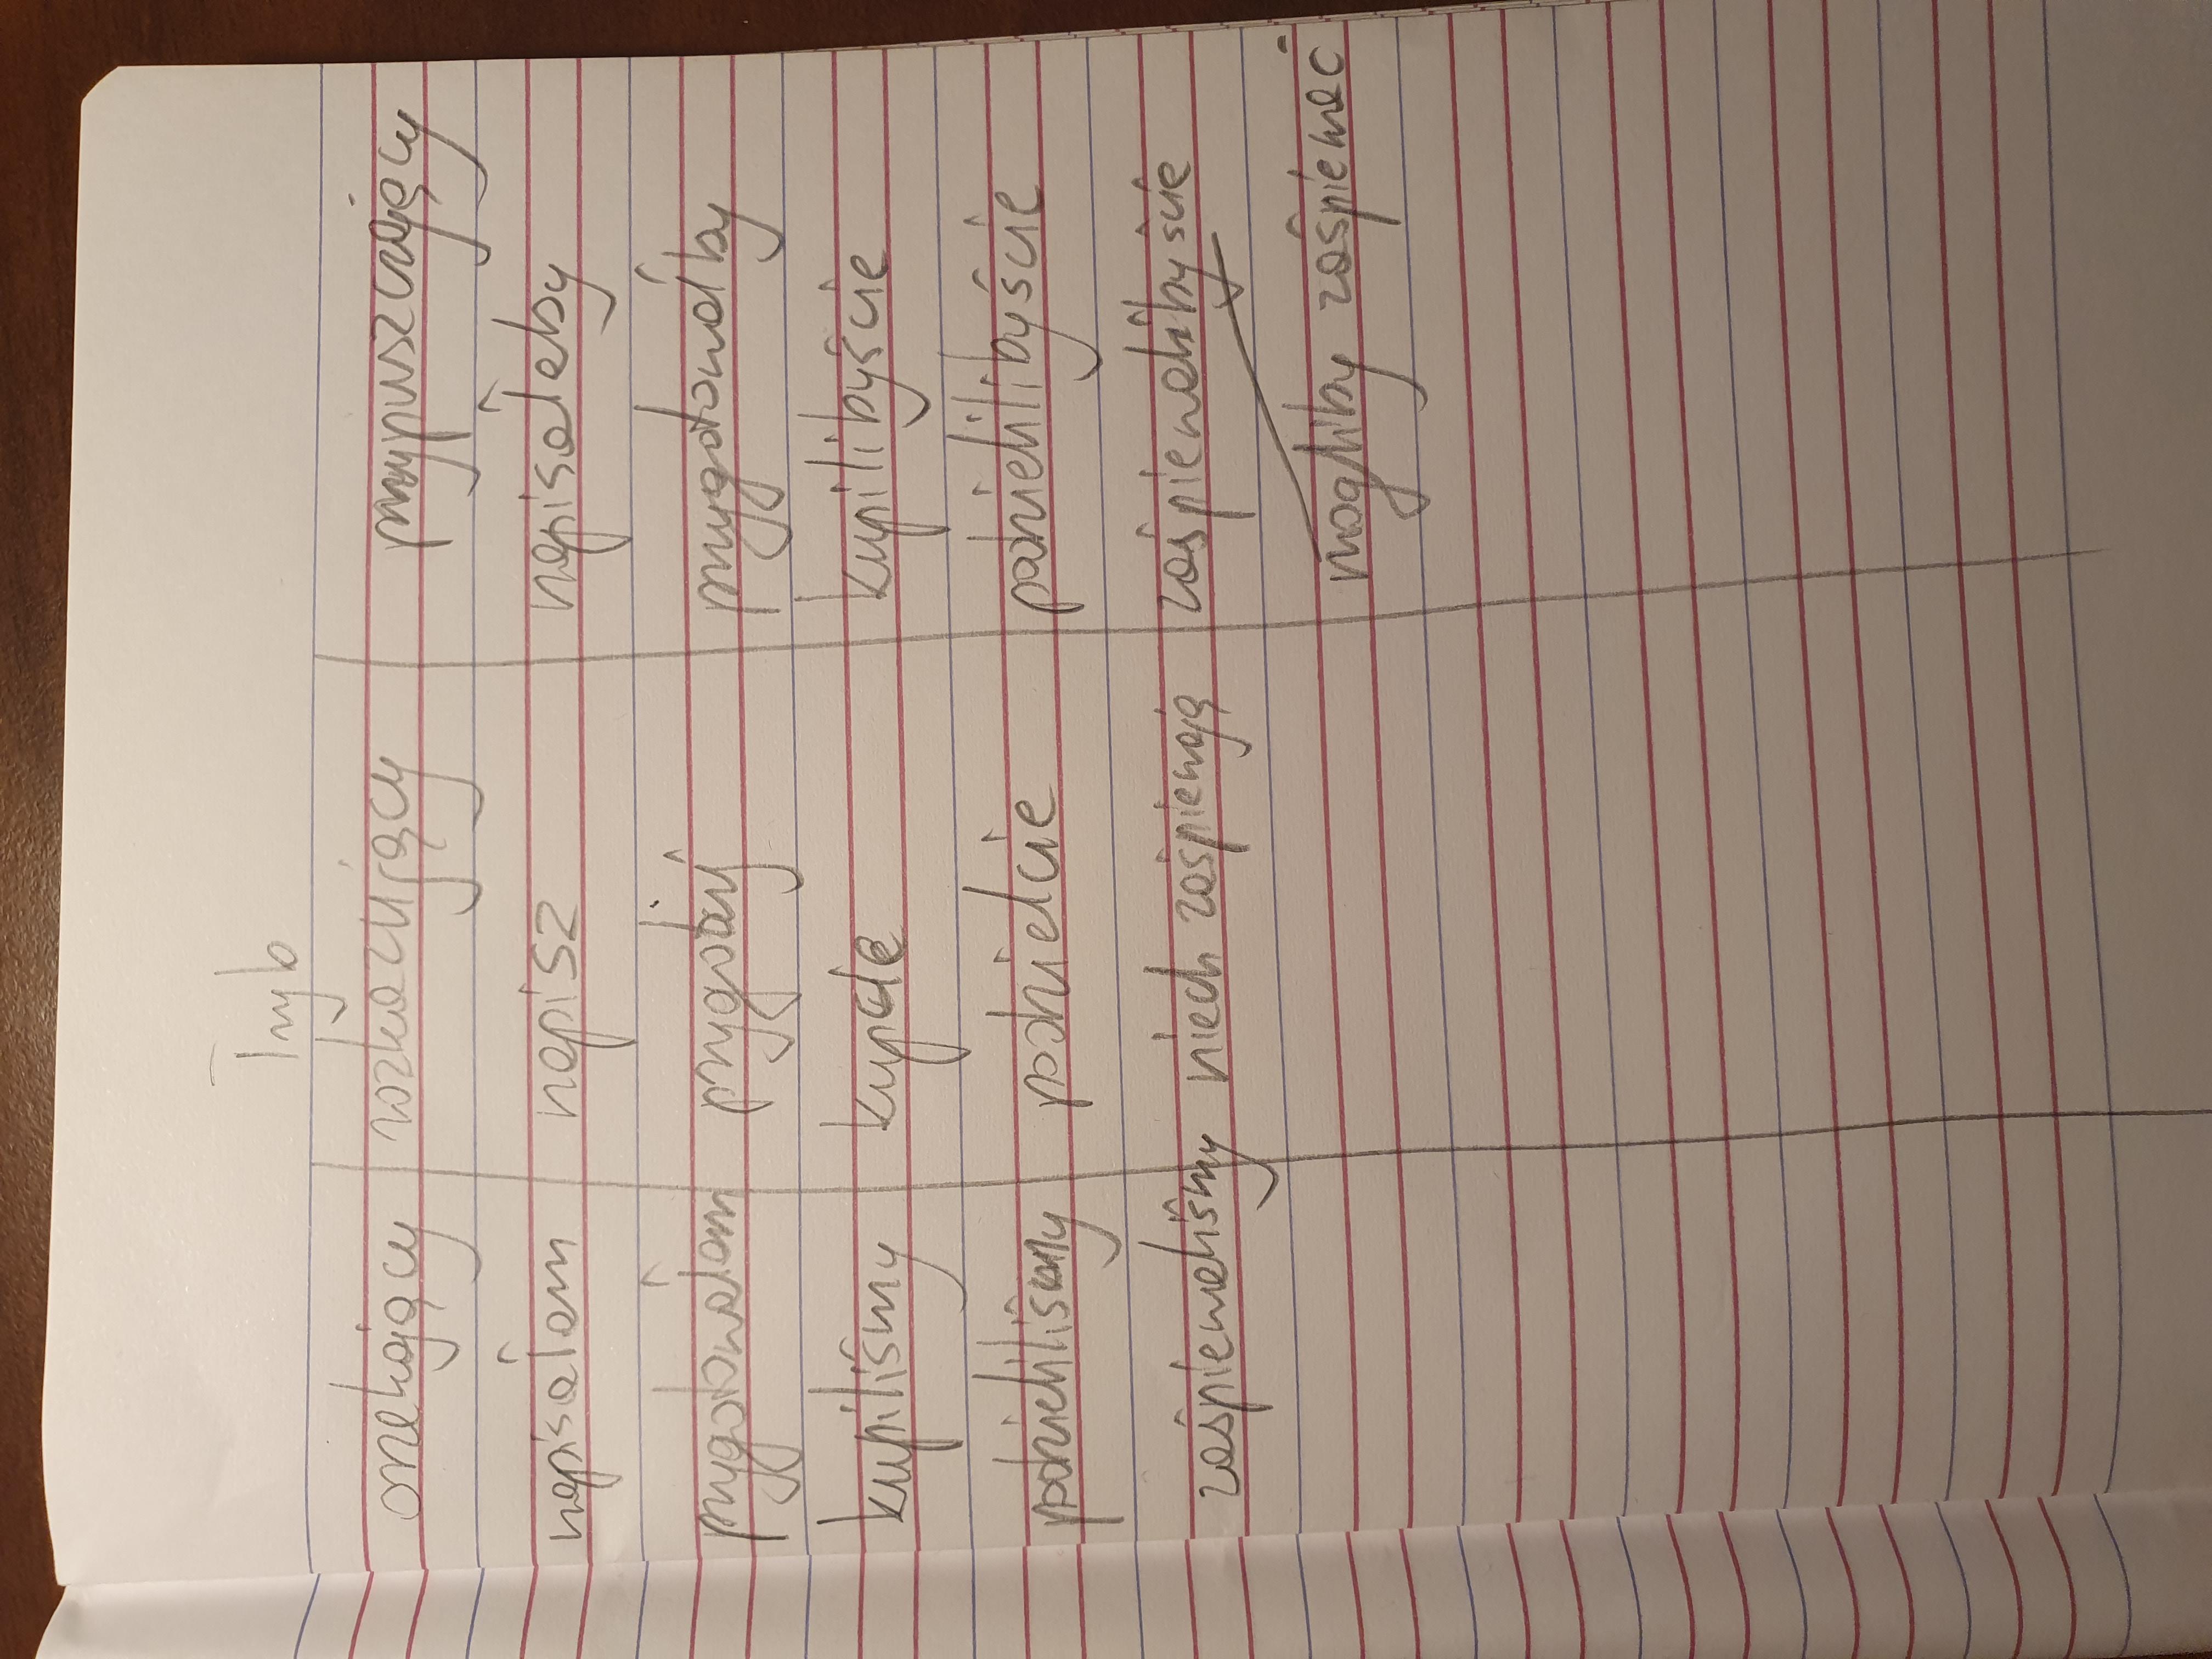 Tryb
orzekający rozkazujący przypuszczający
napisałem napisz napisałeby
przygotowałam przygotuj przygotowałby
kupiliśmy kupcie kupilibyście
podzieliliśmy podzielcie podzielilibyście
zaśpiewaliśmy niech zaśpiewają zaśpiewalibyście
mogliby zaśpiewać